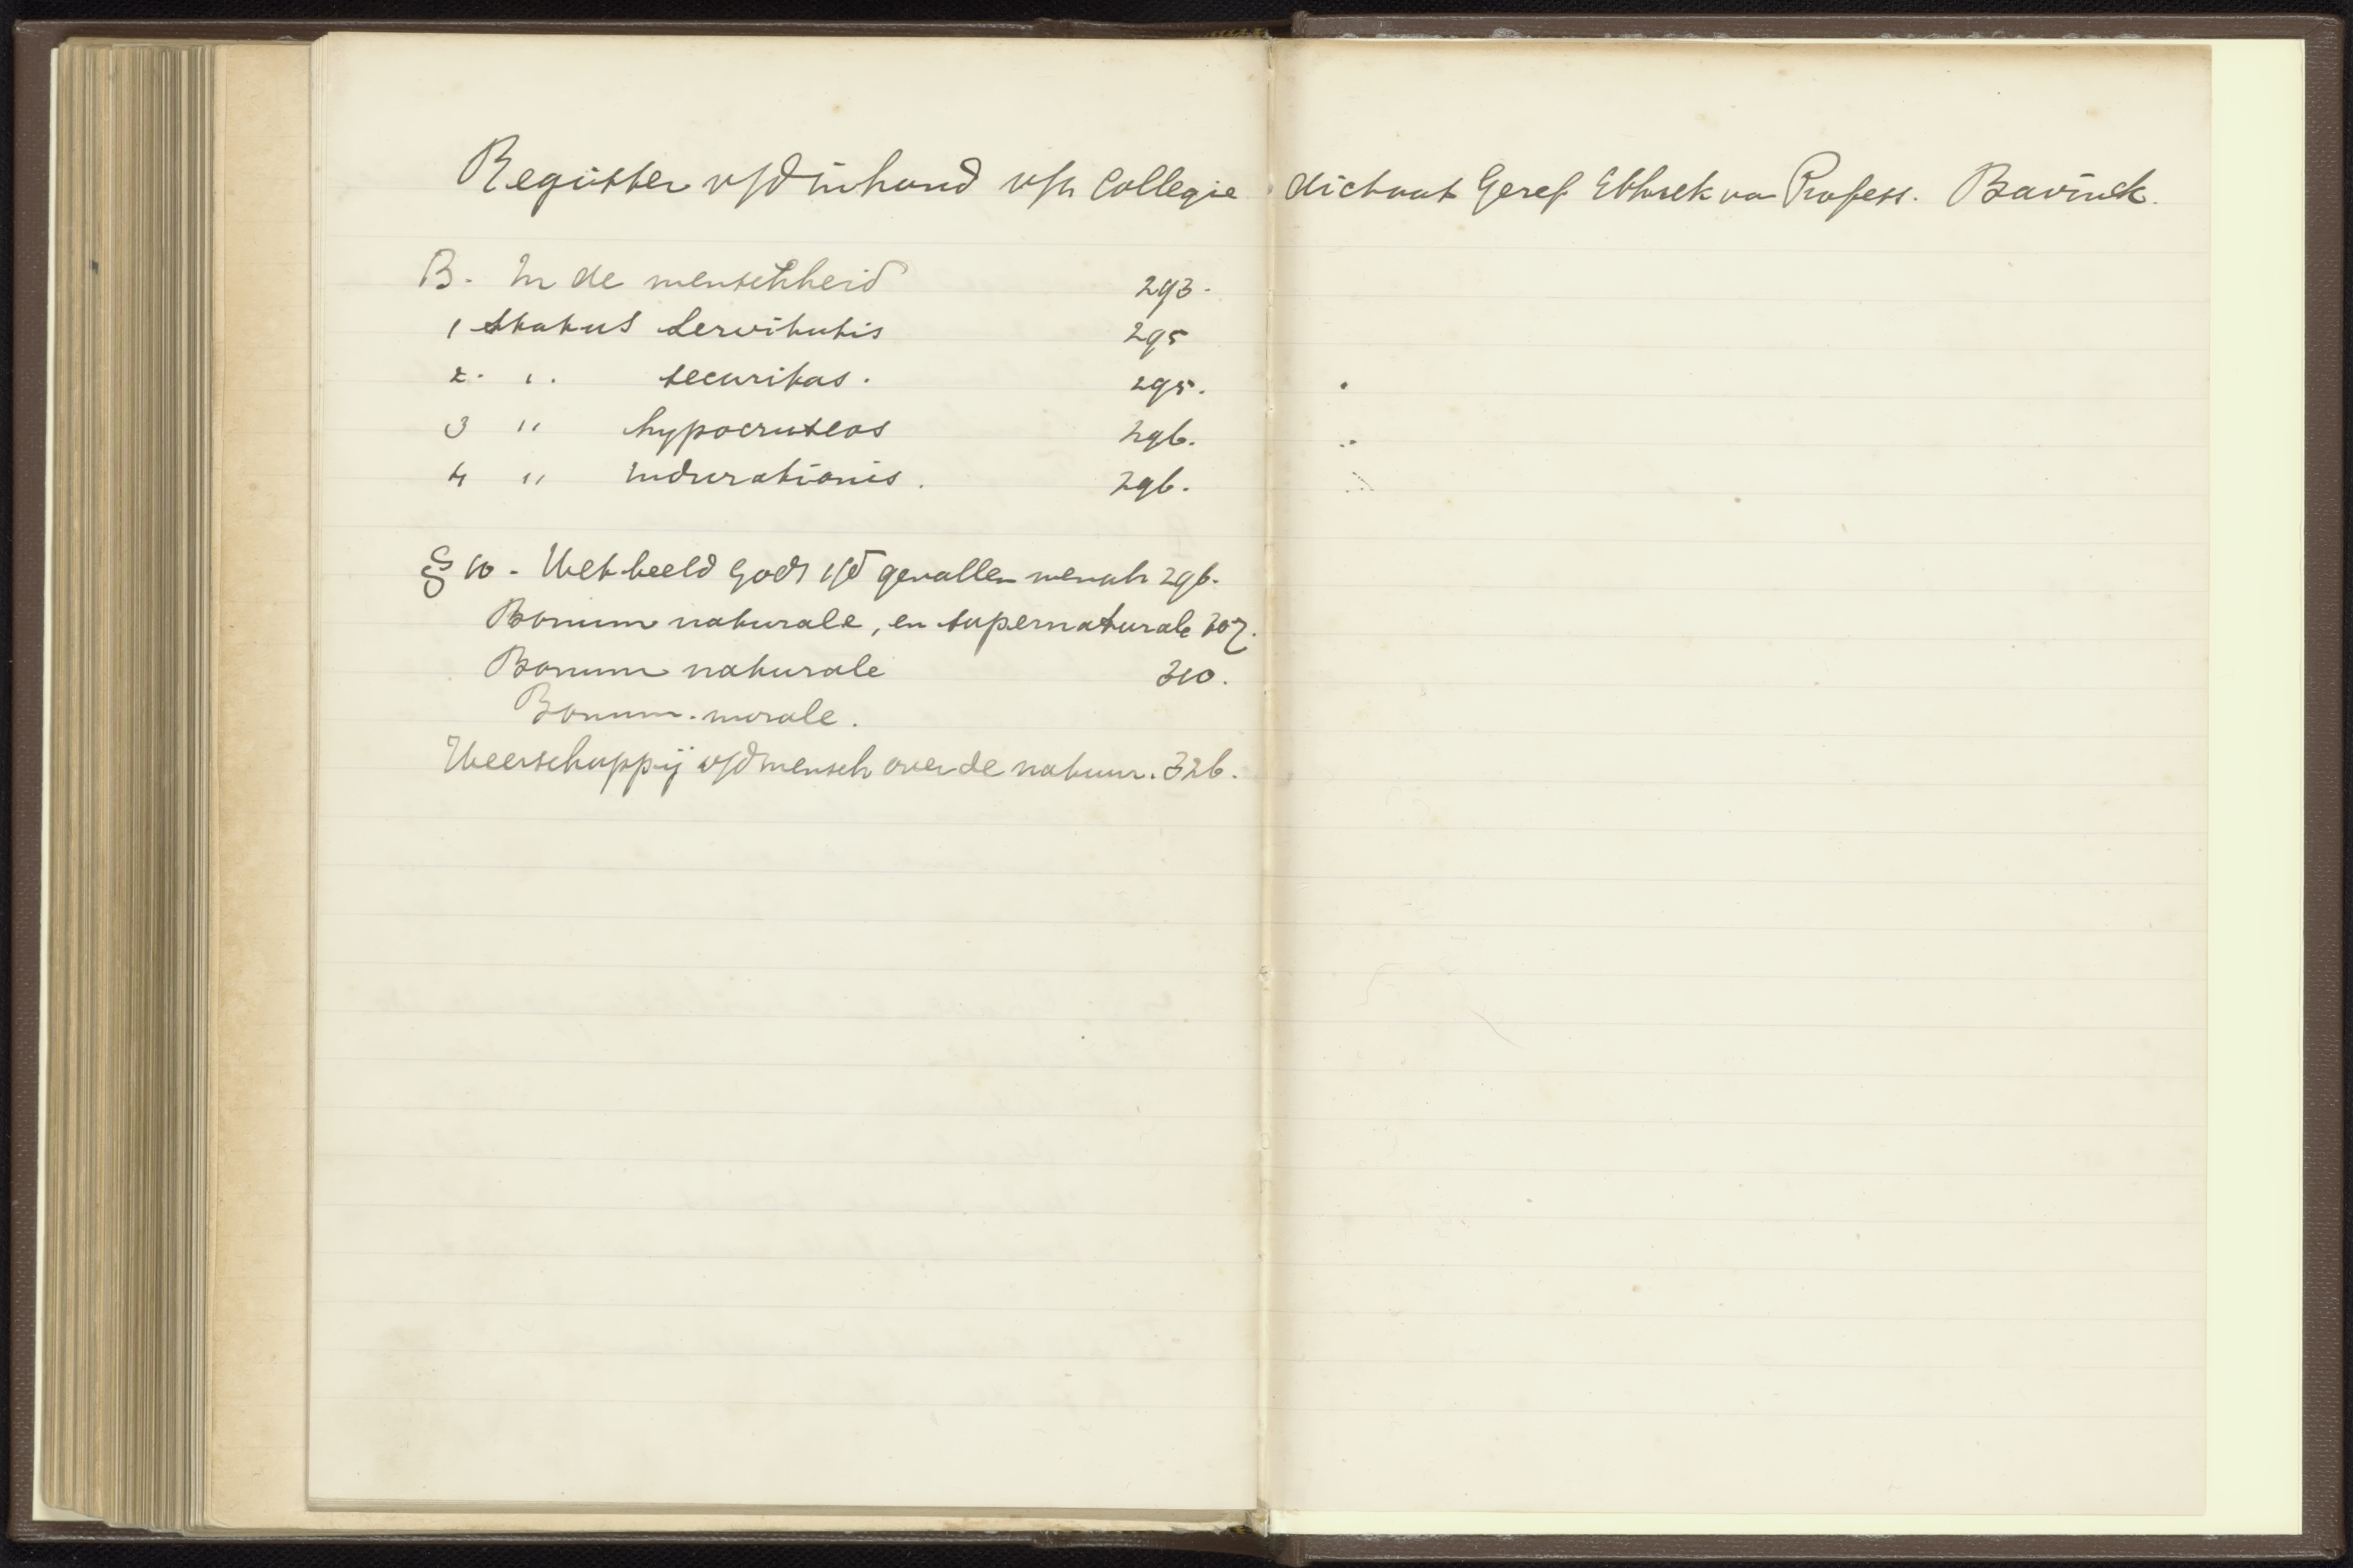 Register v/d inhoud v/h College dictaat Geref Ethiek van Profess. Bavinck.
B. In de menschheid 293.
1 Status Servitutis 295
2. " securitas. 295.
3 " hypocriseos 296.
4 " Indurationis. 296.
§ 10 - Het beeld Gods i/d gevallen mensch 296.
Bonum naturale, en supernaturale 307.
Bonum naturale 310.
Bonum. morale.
Heerschappij v/d mensch over de natuur. 326.